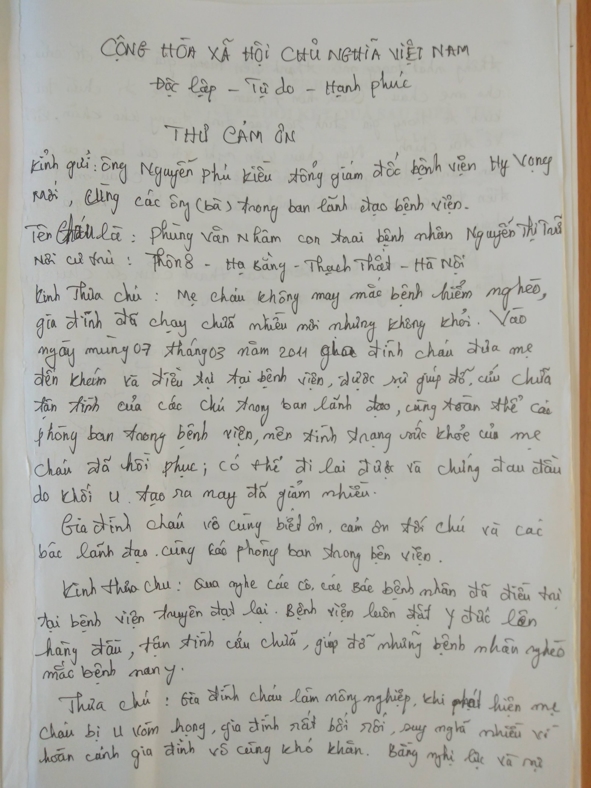 CỘNG HÒA XÃ HỘI CHỦ NGHĨA VIỆT NAM
Độc lập - Tự do - Hạnh phúc
THƯ CẢM ƠN
Kính gửi: Ông Nguyễn phú kiều tổng giám đốc bệnh viện Hy Vọng
mới, cùng các ông (bà) trong ban lãnh đạo bệnh viện.
Tên cháu là: Phùng Văn Nhâm con trai bệnh nhân Nguyễn Thị Trữ
Nơi cư trú: Thôn 8 - Hạ Bằng - Thạch Thất - Hà Nội
Kính Thưa chú: Mẹ cháu không may mắc bệnh hiểm nghèo,
gia đình đã chạy chữa nhiều nơi nhưng không khỏi. Vào
ngày mùng 07 tháng 03 năm 2011 gia đình cháu đưa mẹ
đến khám và điều trị tại bệnh viện, được sự giúp đỡ, cứu chữa
tận tình của các chú trong ban lãnh đạo, cùng toàn thể các
phòng ban trong bệnh viện, nên tình trạng sức khỏe của mẹ
cháu đã hồi phục; có thể đi lại được và chứng đau đầu
do khối u tạo ra nay đã giảm nhiều.
Gia đình cháu vô cùng biết ơn, cảm ơn tới chú và các
bác lãnh đạo cùng các phòng ban trong bện viện.
Kính thưa chú: Qua nghe các cô, các bác bệnh nhân đã điều trị
tại bệnh viện truyền đạt lại. Bệnh viện luôn đặt Y đức lên
hàng đầu, tận tình cứu chữa, giúp đỡ những bệnh nhân nghèo
mắc bệnh nan y.
Thưa chú: Gia đình cháu làm nông nghiệp, khi phát hiện mẹ
cháu bị u vòm họng, gia đình rất bối rối, suy nghĩ nhiều vì
hoàn cảnh gia đình vô cùng khó khăn. Bằng nghị lực và